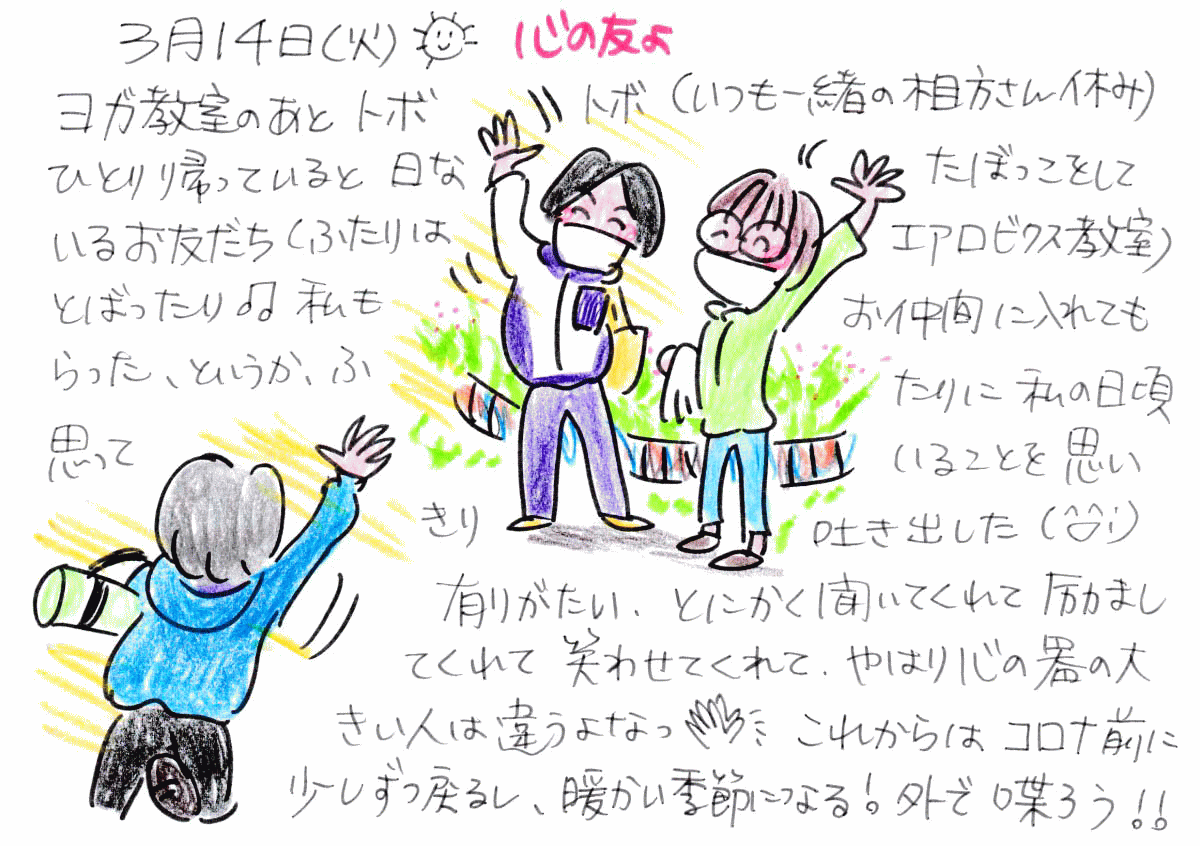 3月14日(火) 心の友よ
ヨガ教室のあと トボ トボ (いつも一緒の相方さん休み)
ひとり帰っていると 日な たぼっこをして
いるお友だち (ふたりは エアロビクス教室)
とばったり♫ 私も お仲間に入れても
らった、というか、ふ たりに 私の日頃
思って いることを思い
きり 吐き出した (^○^;)
有りがたい、とにかく聞いてくれて 励まし
てくれて 笑わせてくれて、やはり心の器の大
きい人は違うよなっ これからは コロナ前に
少しずつ戻るし、暖かい季節になる!外で喋ろう!!